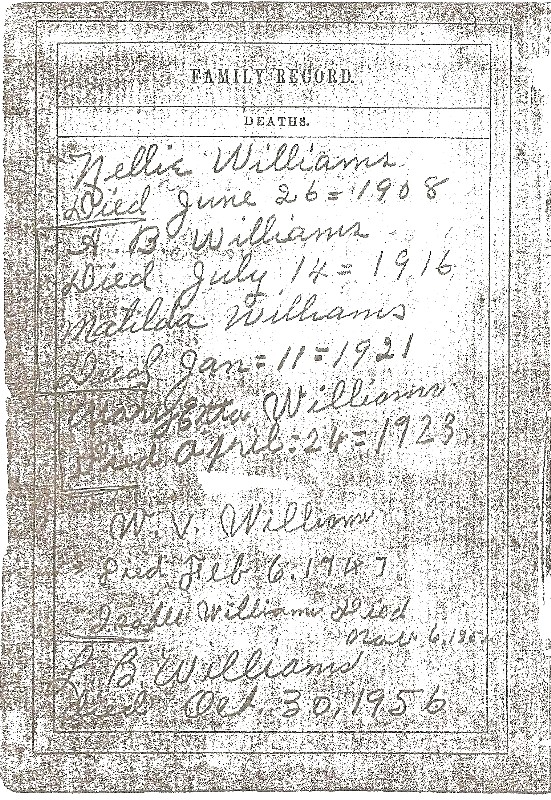 FAMILY RECORD.
DEATHS.
Nellie Williams
Died June 26=1908
A. B. Williams
Died July 14=1916
Matilda Williams
Died Jan=11=1921
Williams
Died April=24=1923
W. V. Williams
Died Feb 6. 1947
Williams Died
Nov 6, 
L B Williams
Died Oct. 30, 1956